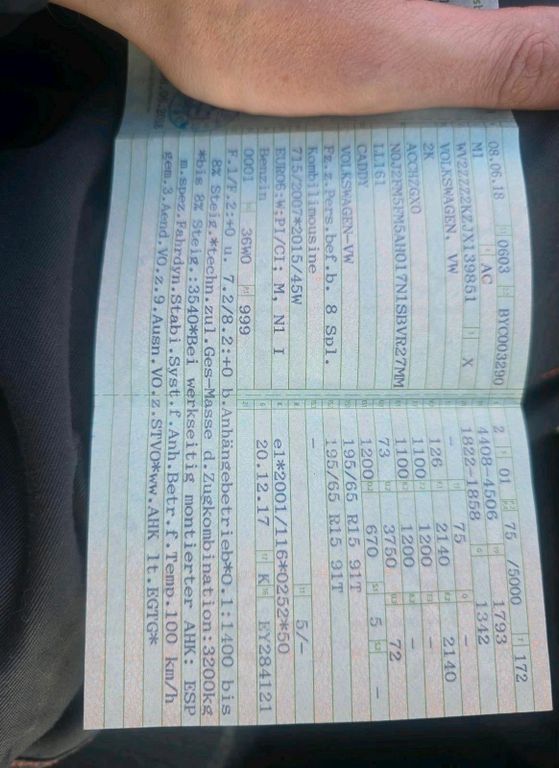 08.06.18 0603 BYC003290
M1 AC
WV2ZZZ2KZJX139851 X
VOLKSWAGEN, VW
2K
ACCHZGX0
N0J2FM5FM5AH017N1SBVR27MM
LL161
CADDY
VOLKSWAGEN-VW
Fz.z.Pers.bef.b. 8 Spl.
Kombilimousine
715/2007*2015/45W
EURO6;W:PI/CI; M, N1 I
Benzin
0001 36W0 999
2 01 75 /5000 172
4408-4506 1793
1822-1858 1342
- 75 -
126 2140 2140
1100 1200 -
1100 1200 -
73 3750 72
1200 670 5 -
195/65 R15 91T
195/65 R15 91T
- 5/-
e1*2001/116*0252*50
20.12.17 K EY284121
F.1/F.2:+0 u. 7.2/8.2:+0 b.Anhängebetrieb*O.1:1400 bis
8% Steig.*techn.zul.Ges-Masse d.Zugkombination:3200kg
*bis 8% Steig.:3540*Bei werkseitig montierter AHK: ESP
m.spez.Fahrdyn.Stabi.Syst.f.Anh.Betr.f.Temp.100 km/h
gem.3.Aend.VO.z.9.Ausn.VO.z.STVO*ww.AHK lt.EGTG*